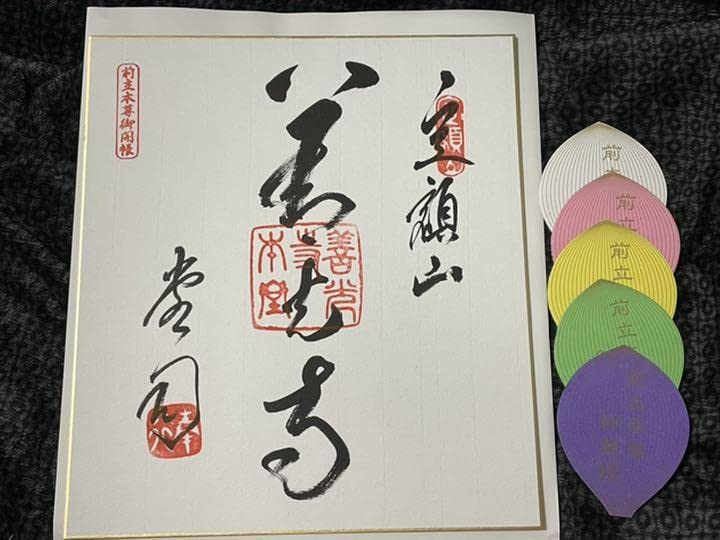 定額山
定額山
善光寺
善光
寺
本堂
堂司
前立本尊御開帳
前
前立
前立
前立
前立本尊
御開帳